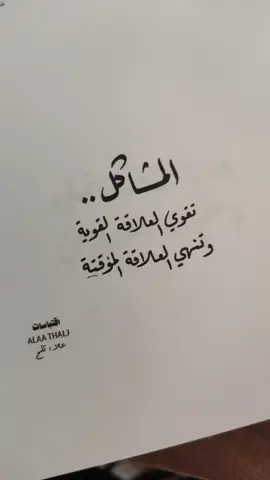 المشاكل ..
تقوي العلاقة القوية
وتنهي العلاقة المؤقتة
اقتباسات
ALAA THALJ
علاء ثلج